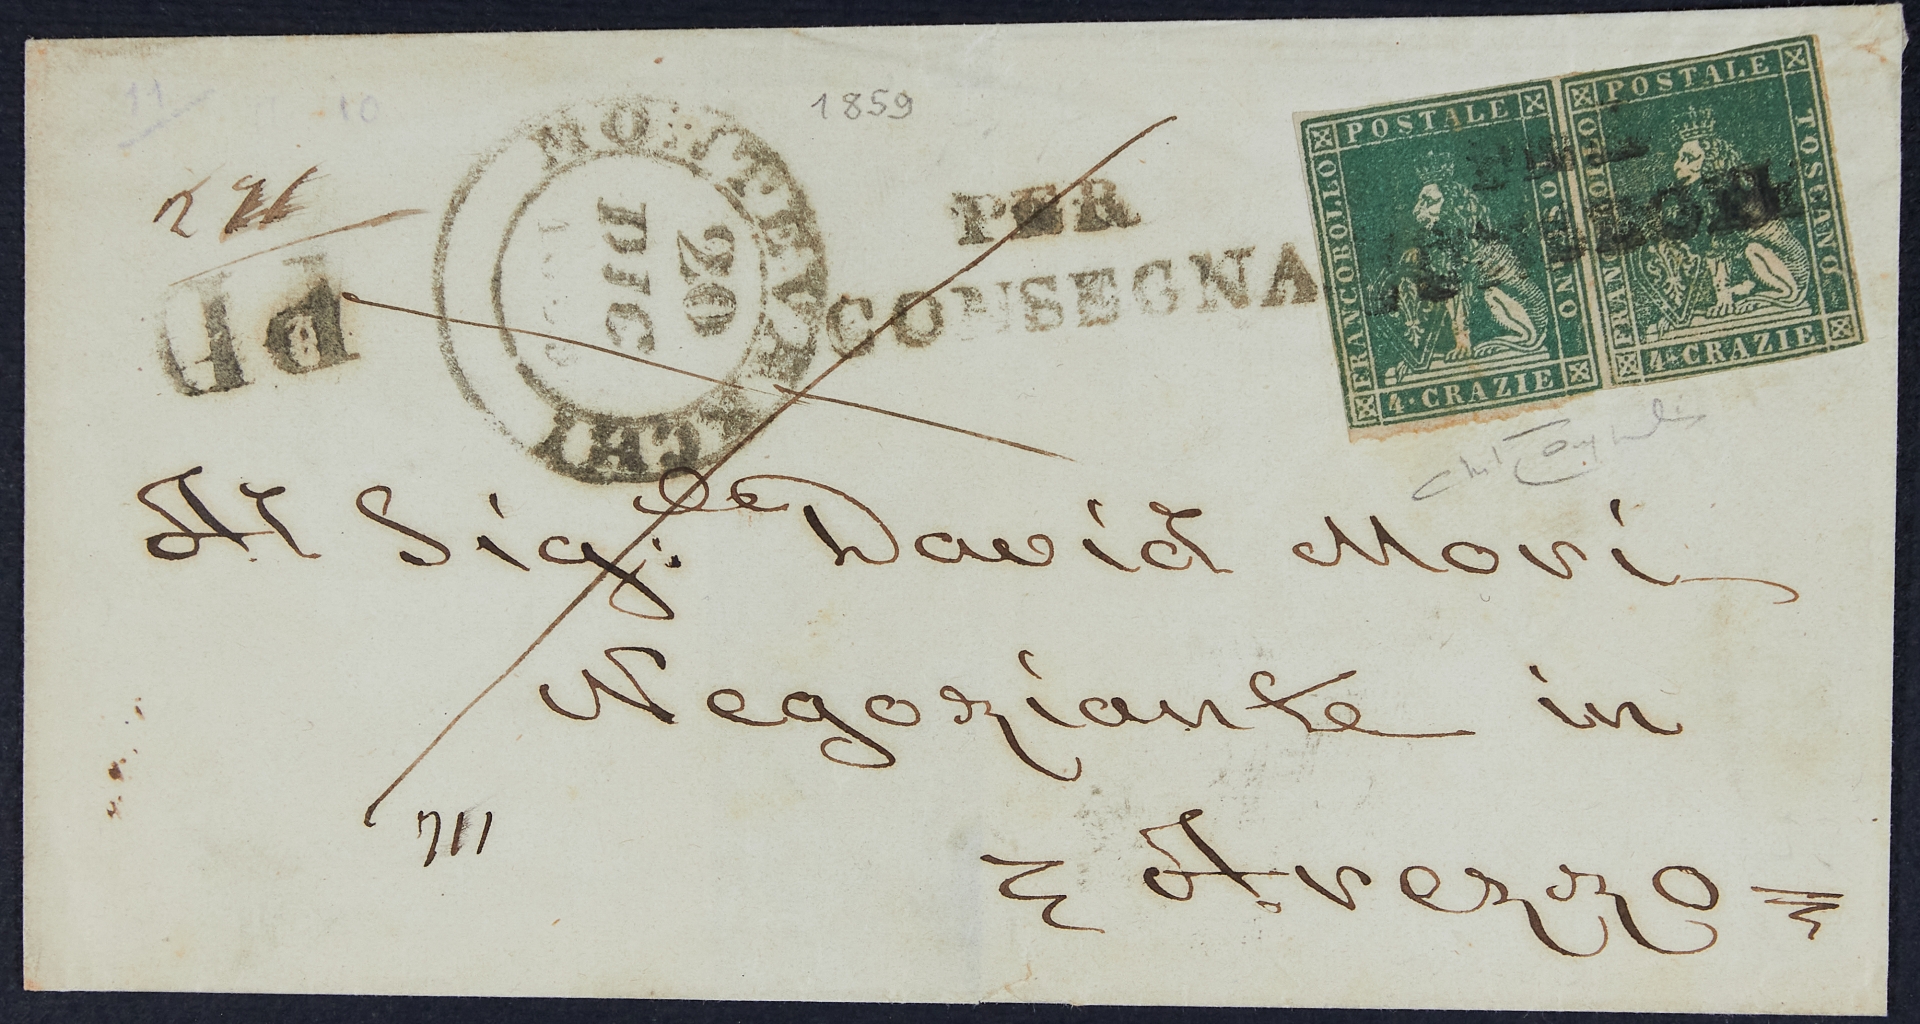 11
10
1859
MONTEVARCHI
20
DIC
PER
CONSEGNA
PD
POSTALE
FRANCOBOLLO
TOSCANO
4·CRAZIE
POSTALE
FRANCOBOLLO
TOSCANO
4·CRAZIE
PER
CONSEGNA
Al Sig.re David Mori
Negoziante in
Arezzo
711